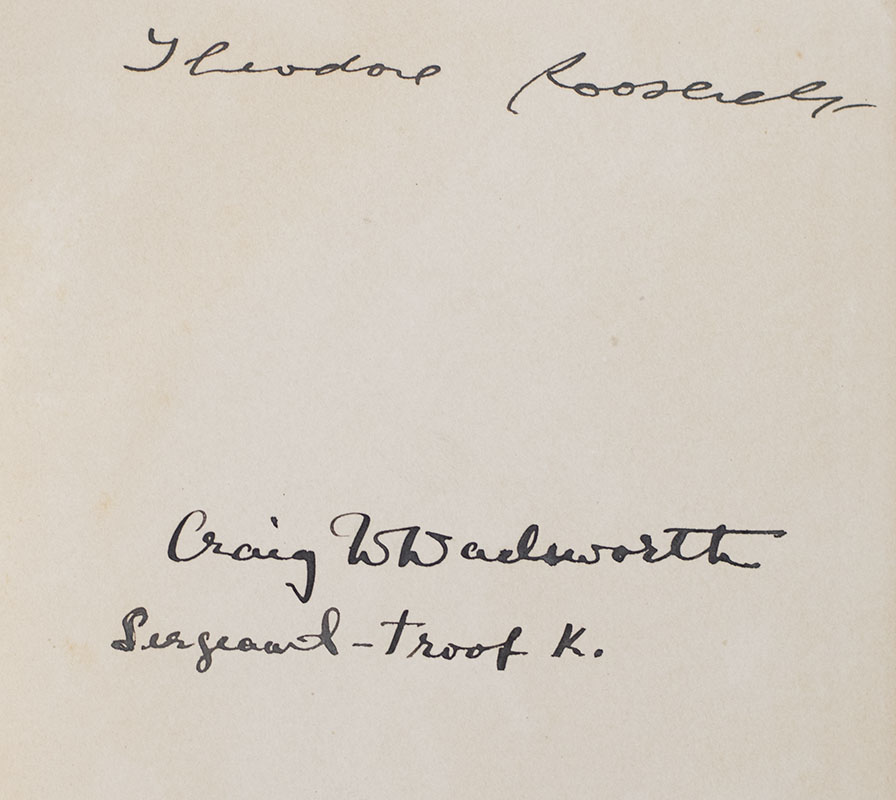 Theodore Roosevelt
Craig W Wadsworth
Sergeant - Troop K.